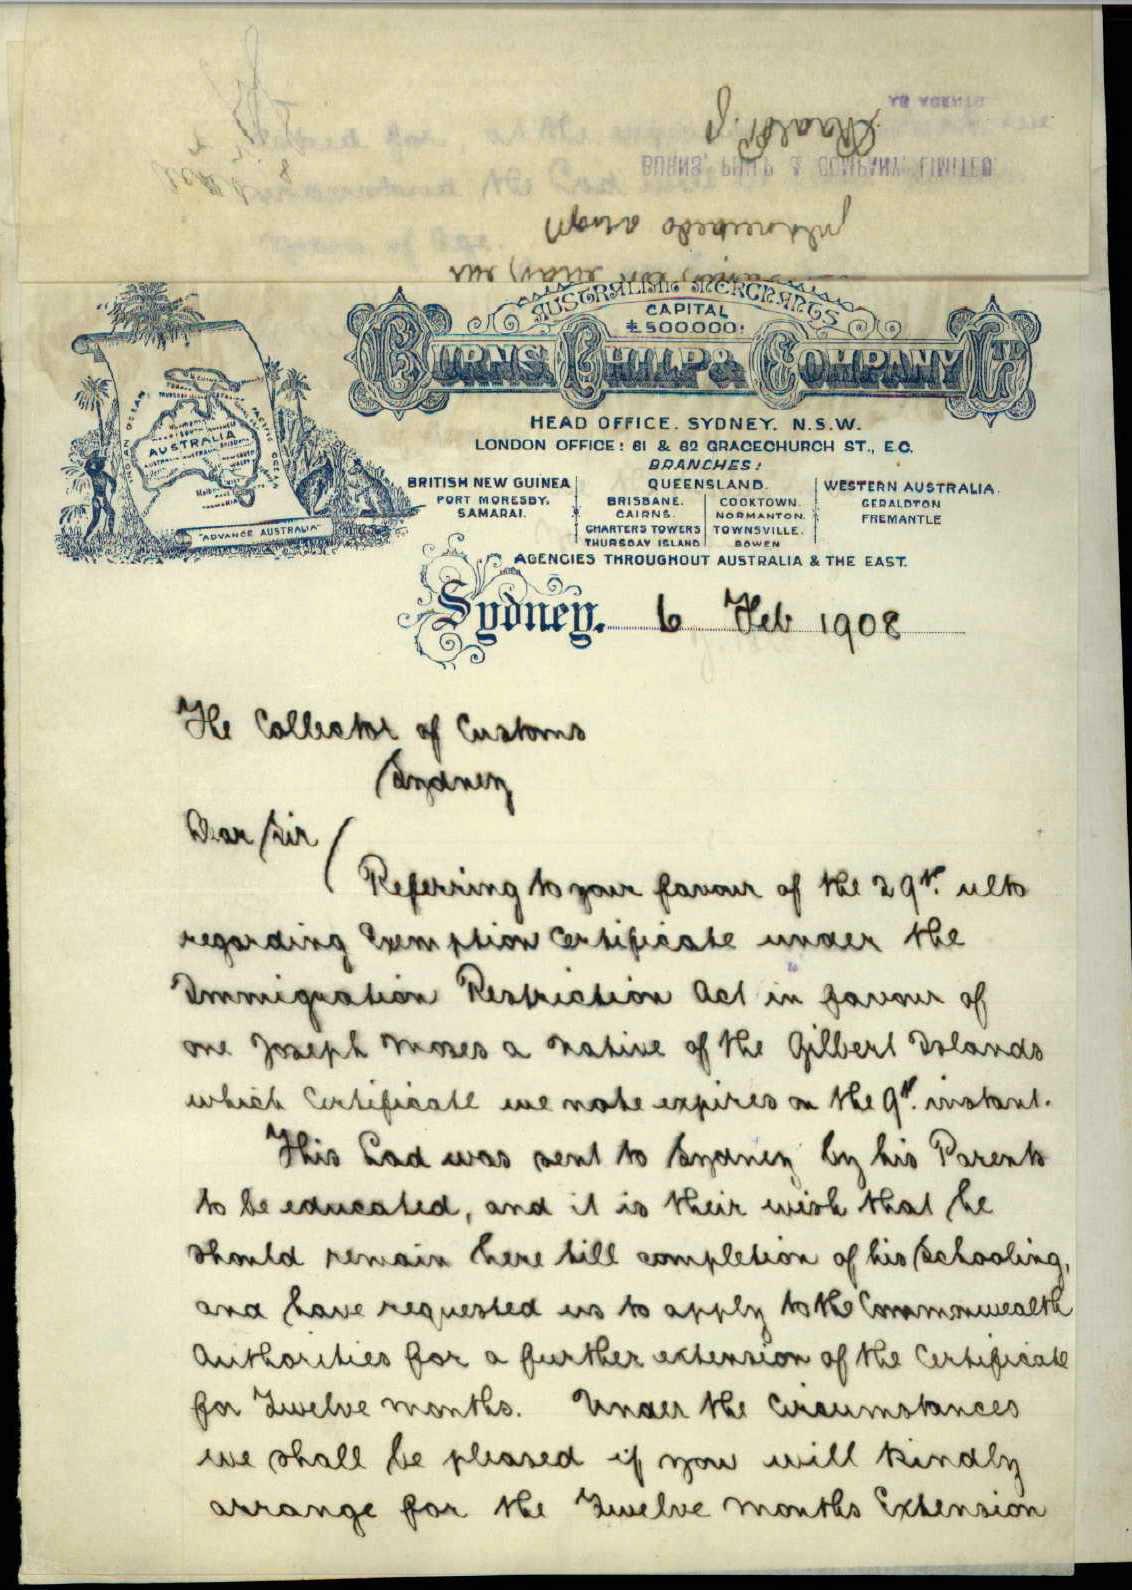 AUSTRALIAN MERCHANTS
CAPITAL
£500000:
BURNS, PHILP & COMPANY LTD
HEAD OFFICE. SYDNEY. N.S.W.
LONDON OFFICE: 61 & 62 GRACECHURCH ST., E.C.
BRANCHES:
BRITISH NEW GUINEA
PORT MORESBY.
SAMARAI.
QUEENSLAND.
BRISBANE.
CAIRNS.
CHARTERS TOWERS
THURSDAY ISLAND
COOKTOWN.
NORMANTON.
TOWNSVILLE.
BOWEN
WESTERN AUSTRALIA.
GERALDTON
FREMANTLE
AGENCIES THROUGHOUT AUSTRALIA & THE EAST.
AUSTRALIA
"ADVANCE AUSTRALIA"
Sydney. 6 Feb 1908
The Collector of Customs
Sydney
Dear Sir
Referring to your favour of the 29th. ulto
regarding Exemption Certificate under the
Immigration Restriction Act in favour of
one Joseph Moses a native of the Gilbert Islands
which Certificate we note expires on the 9th. instant.
This Lad was sent to Sydney by his Parents
to be educated, and it is their wish that he
should remain here till completion of his Schooling,
and have requested us to apply to the Commonwealth
Authorities for a further extension of the Certificate
for Twelve months. Under the Circumstances
we shall be pleased if you will kindly
arrange for the Twelve months Extension
BURNS, PHILP & COMPANY, LIMITED
AS AGENTS